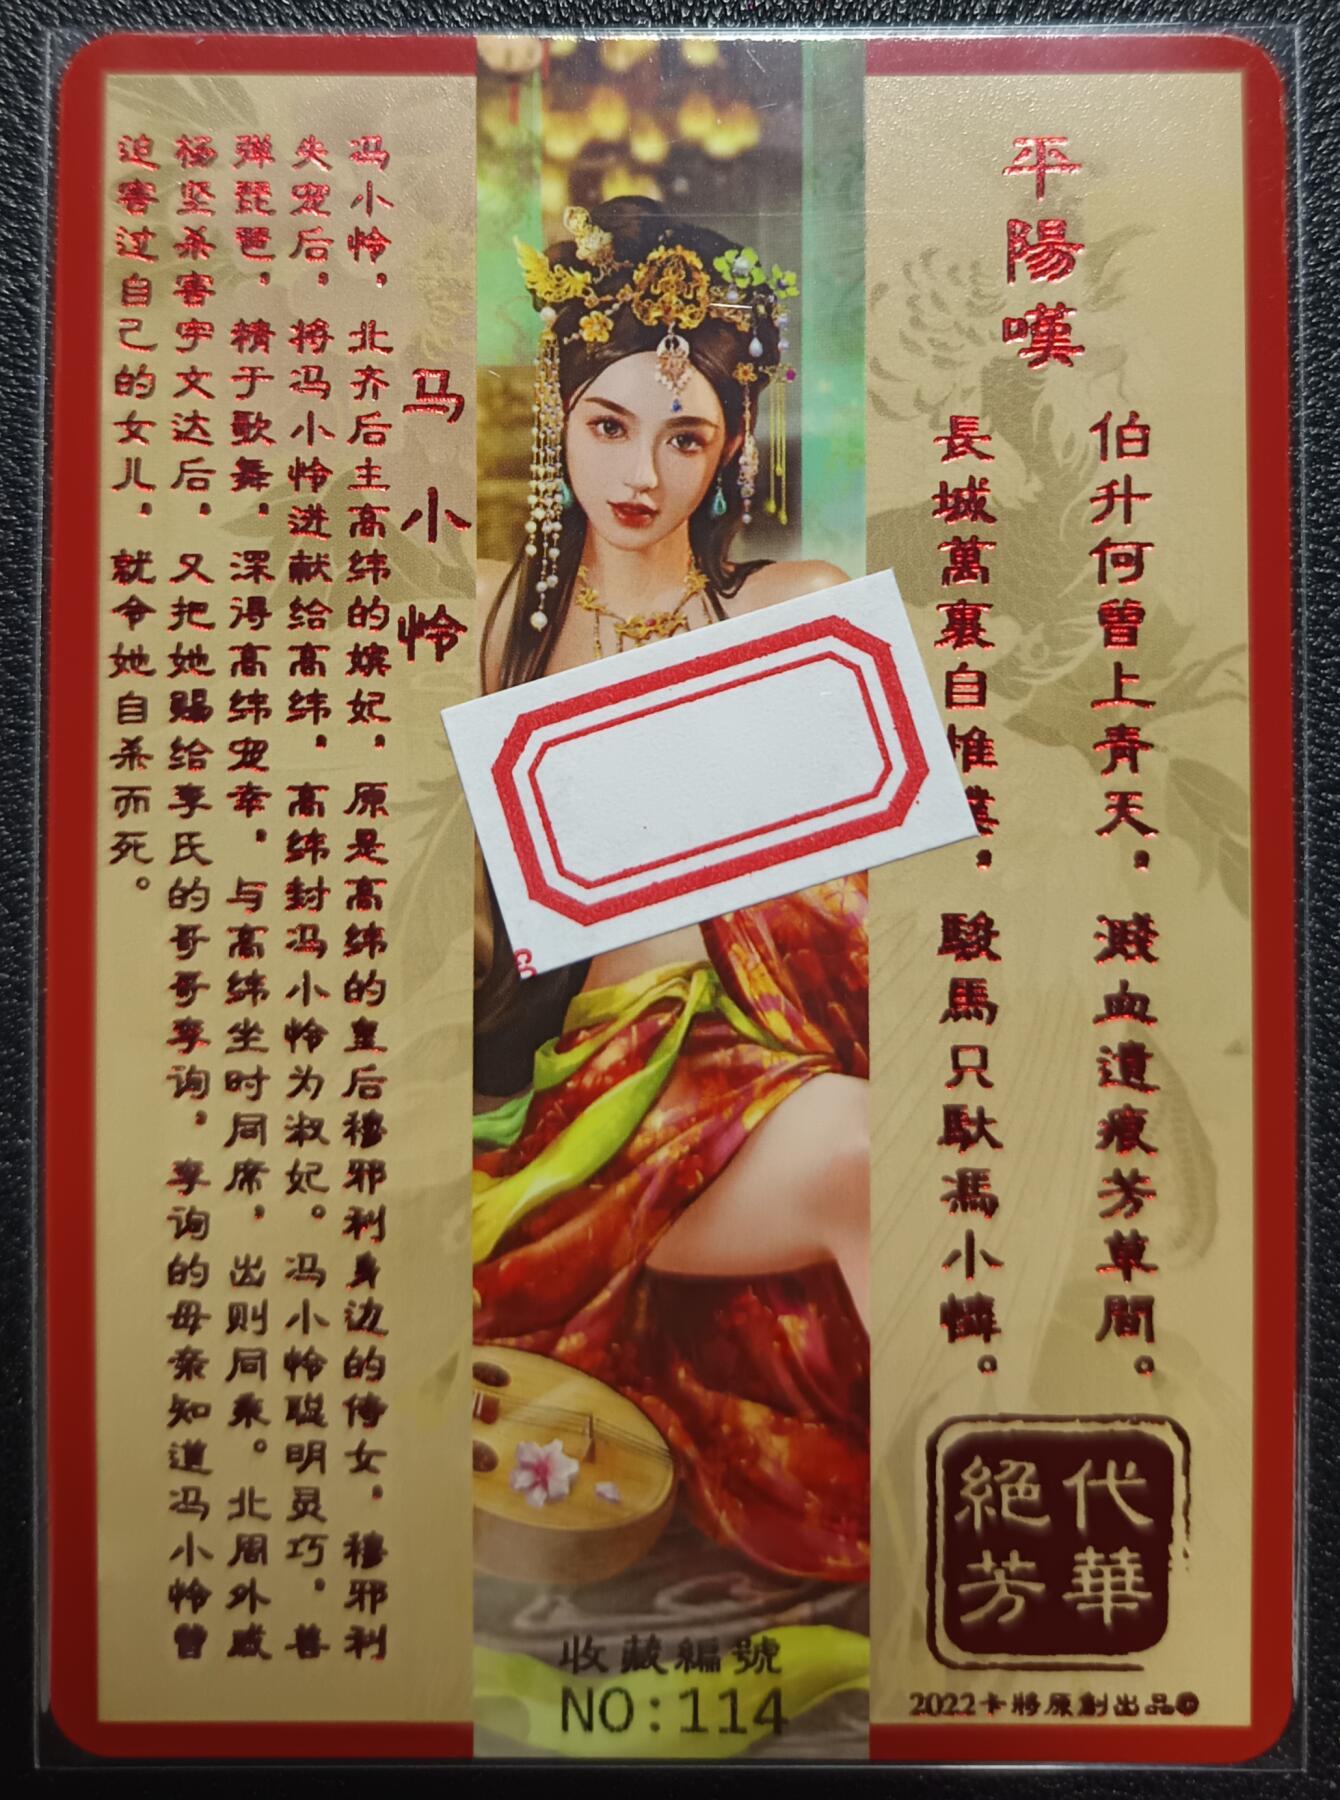 平陽嘆
伯升何曾上青天，濺血遺痕芳草間。
長城萬裏自惟，駿馬只馱馮小憐。
代華
絕芳
2022卡將原創出品©
马小怜
冯小怜，北齐后主高纬的嫔妃，原是高纬的皇后穆邪利身边的侍女，穆邪利
失宠后，将冯小怜进献给高纬，高纬封冯小怜为淑妃。冯小怜聪明灵巧，善
弹琵琶，精于歌舞，深得高纬宠幸，与高纬坐时同席，出则同乘。北周外戚
杨坚杀害宇文达后，又把她赐给李氏的哥哥李询，李询的母亲知道冯小怜曾
迫害过自己的女儿，就令她自杀而死。
收藏編號
NO:114